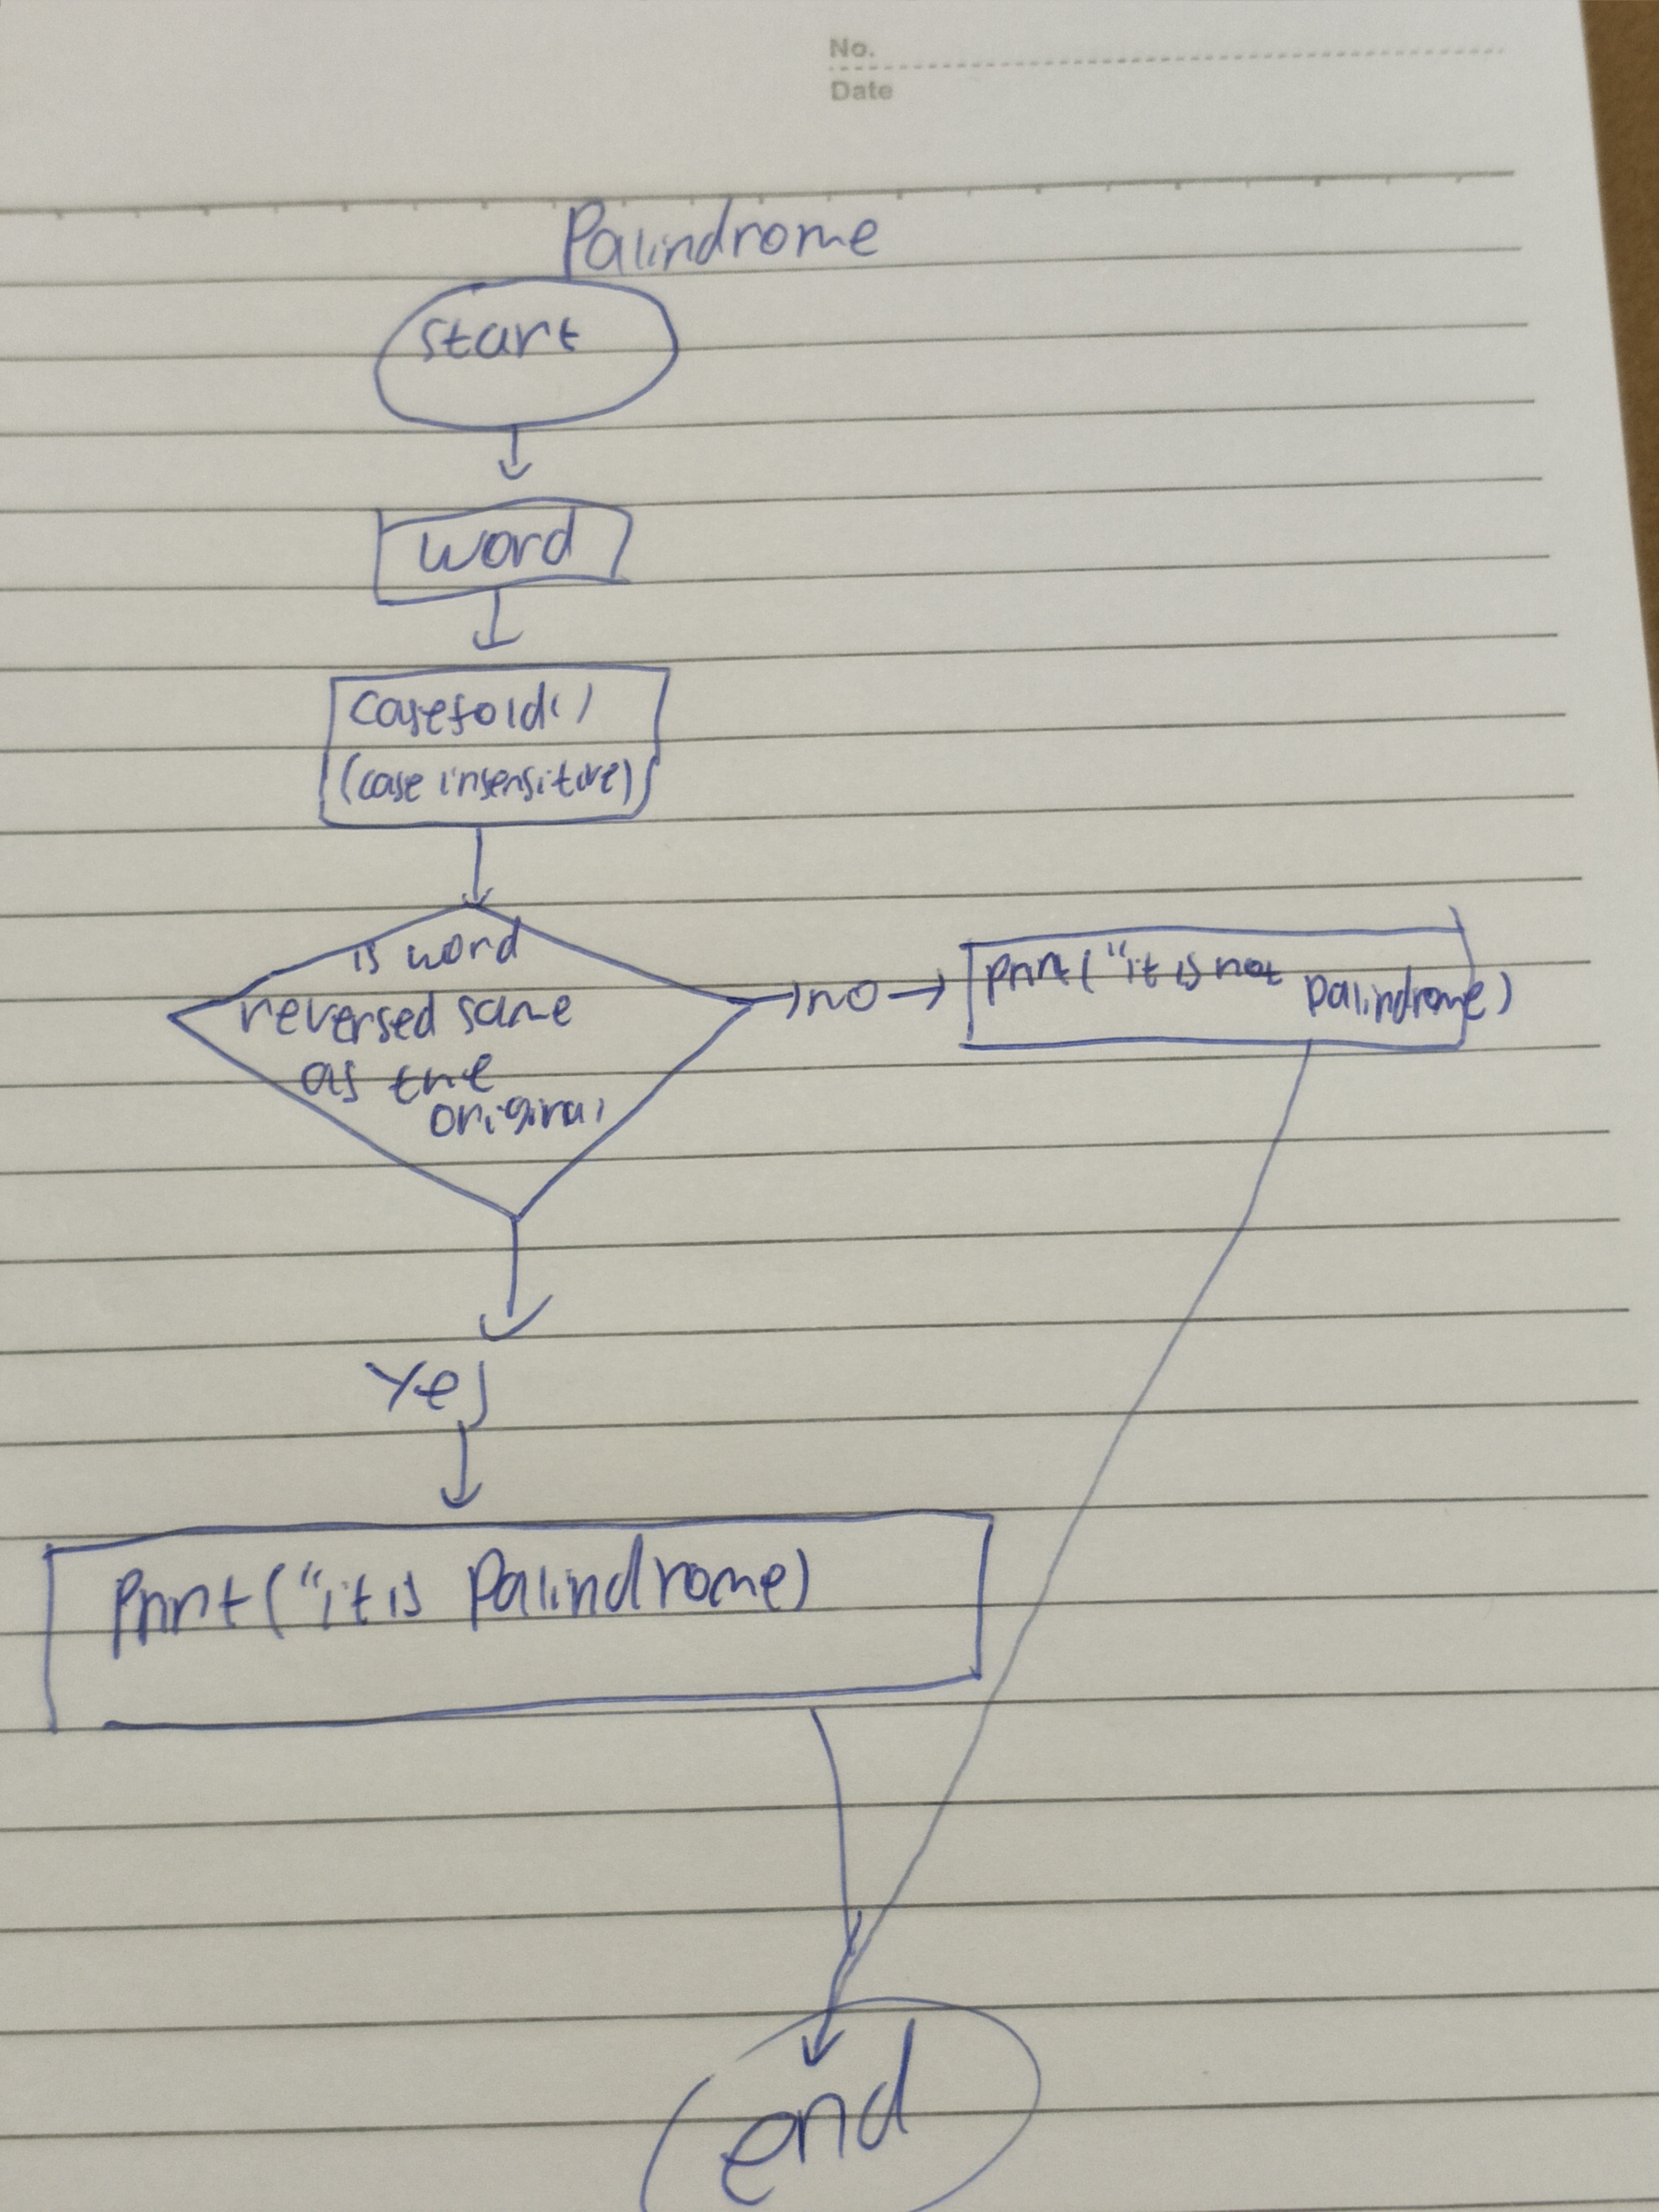 No.
Date
Palindrome
start
word
casefold()
(case insensitive)
is word
reversed same
as the
original
no
print("it is not
palindrome)
Yes
Print("it is Palindrome)
end